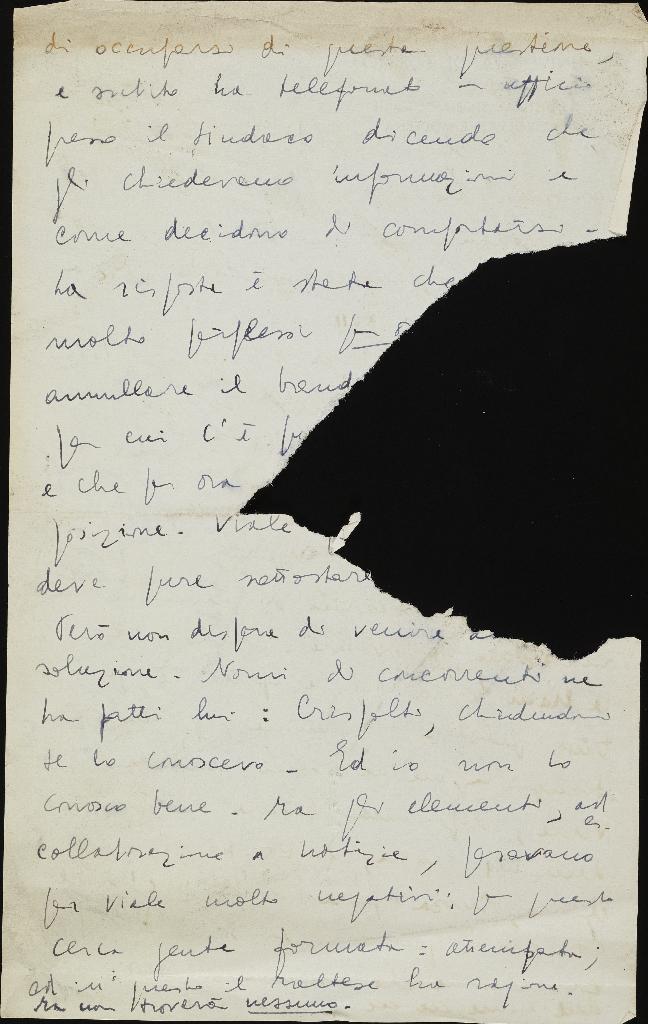 di occuparsi di questa questione,
e subito ha telefonato in ufficio
presso il sindaco dicendo che
gli chiedevano informazioni e
come decidono di comportarsi -
La risposta è stata che
molto perplessi per
annullare il band
per cui c'è
e che per ora
posizione. Viale
deve pure sottostare
Però non dispera di venire a
soluzione. Nomi di concorrenti ne
ha fatti lui: Crispolti, chiedendomi
se lo conoscevo - Ed io non lo
conosco bene. Ma gli elementi, ad es.
collaborazione a notizie, pesavano
per Viale molto negativi: per questo
cerca gente formata: attempata;
ed in questo il Maltese ha ragione.
Ma non troverà nessuno.